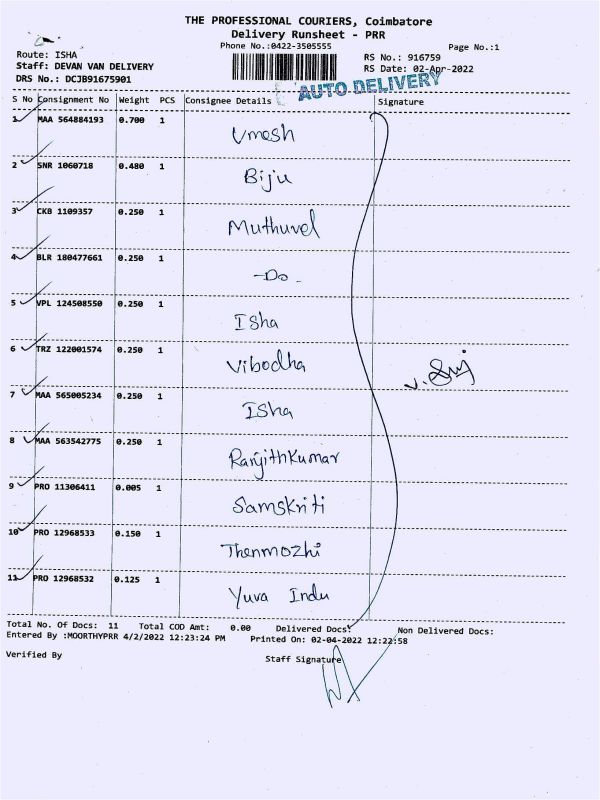 THE PROFESSIONAL COURIERS, Coimbatore
Delivery Runsheet - PRR
Phone No.:0422-3505555
Page No.:1
Route: ISHA
Staff: DEVAN VAN DELIVERY
DRS No.: DCJB91675901
RS No.: 916759
RS Date: 02-Apr-2022
AUTO DELIVERY
S No Consignment No Weight PCS Consignee Details Signature
1 MAA 564884193 0.700 1 Umesh
2 SNR 1060718 0.480 1 Biju
3 CKB 1109357 0.250 1 Muthuvel
4 BLR 180477661 0.250 1 -Do-
5 VPL 124508550 0.250 1 Isha
6 TRZ 122001574 0.250 1 Vibodha
7 MAA 565005234 0.250 1 Isha
8 MAA 563542775 0.250 1 Ranjithkumar
9 PRO 11306411 0.005 1 Samskriti
10 PRO 12968533 0.150 1 Thenmozhi
11 PRO 12968532 0.125 1 Yuva Indu
Total No. Of Docs: 11 Total COD Amt: 0.00 Delivered Docs: Non Delivered Docs:
Entered By :MOORTHYPRR 4/2/2022 12:23:24 PM Printed On: 02-04-2022 12:22:58
Verified By Staff Signature